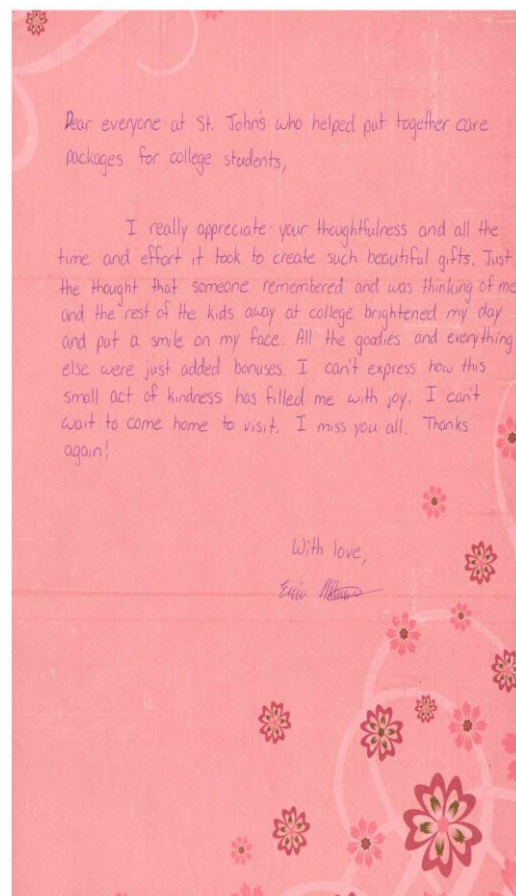 Dear everyone at St. John's who helped put together care
packages for college students,
I really appreciate your thoughtfulness and all the
time and effort it took to create such beautiful gifts. Just
the thought that someone remembered and was thinking of me
and the rest of the kids away at college brightened my day
and put a smile on my face. All the goodies and everything
else were just added bonuses. I can't express how this
small act of kindness has filled me with joy. I can't
wait to come home to visit. I miss you all. Thanks
again!
With love,